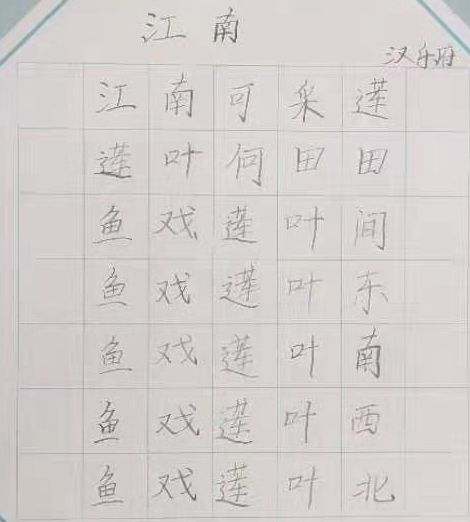 江南
汉乐府
江南可采莲
莲叶何田田
鱼戏莲叶间
鱼戏莲叶东
鱼戏莲叶南
鱼戏莲叶西
鱼戏莲叶北